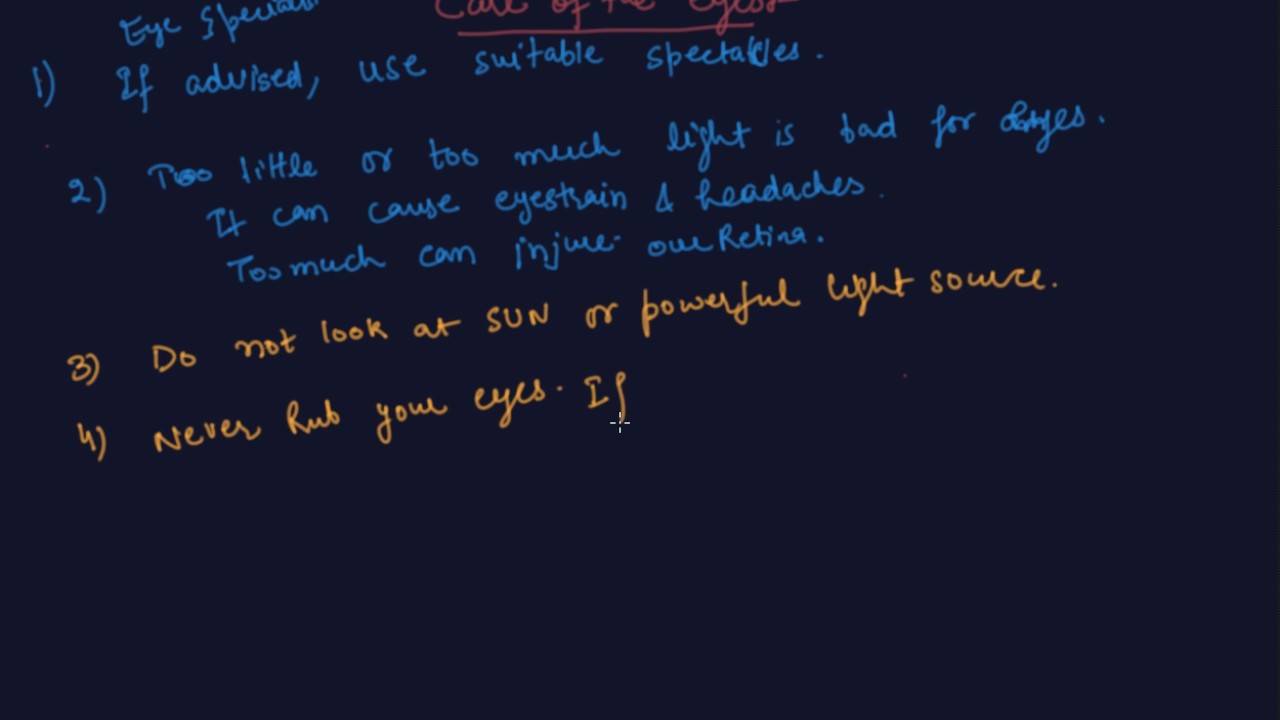 Care of the eyes
Eye Specialist
1) If advised, use suitable spectacles.
2) Too little or too much light is bad for eyes.
It can cause eyestrain & headaches.
Too much can injure our Retina.
3) Do not look at SUN or powerful light source.
4) Never Rub your eyes. If